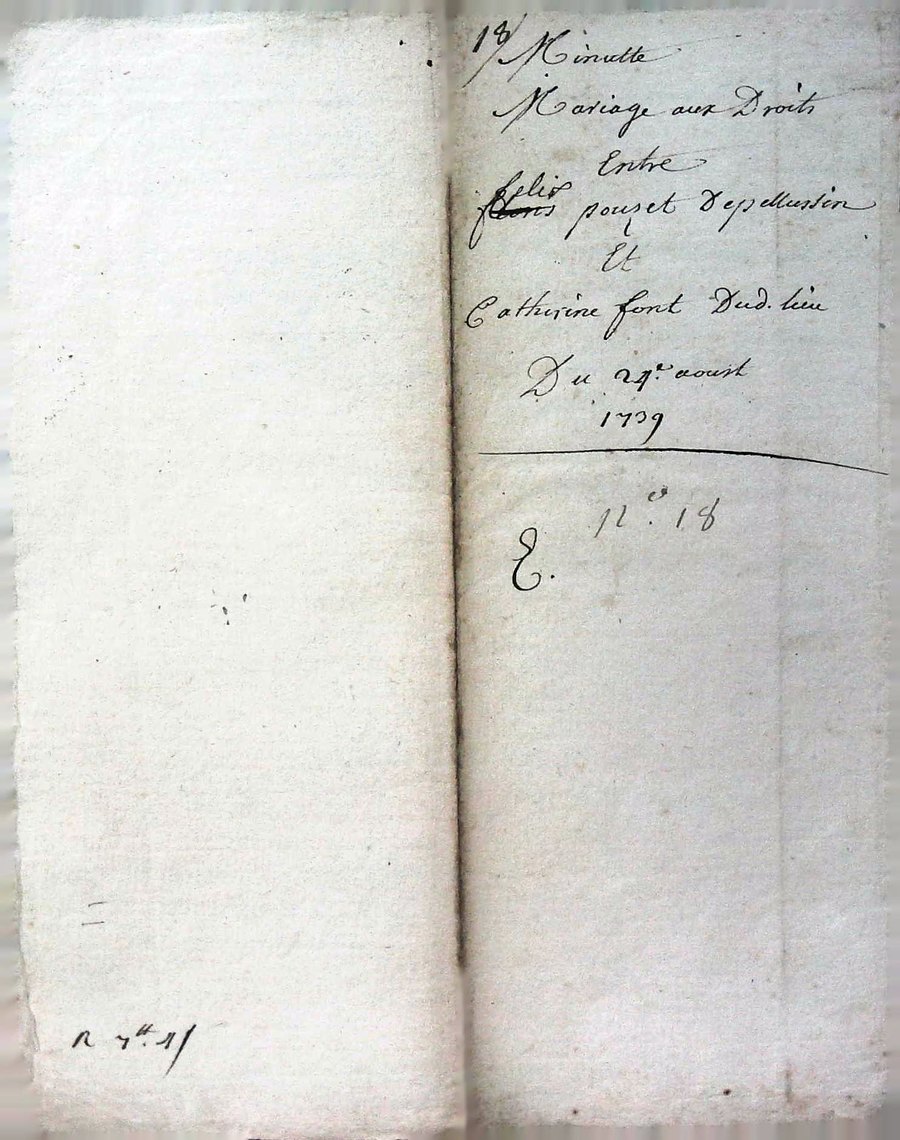 18/ Minutte
Mariage aux Droits
Entre
felix
pouzet Depellussin
Et
Catherine font Dud. lieu
Du 24e. aoust
1739
No. 18
E.
R 7tt. 4s